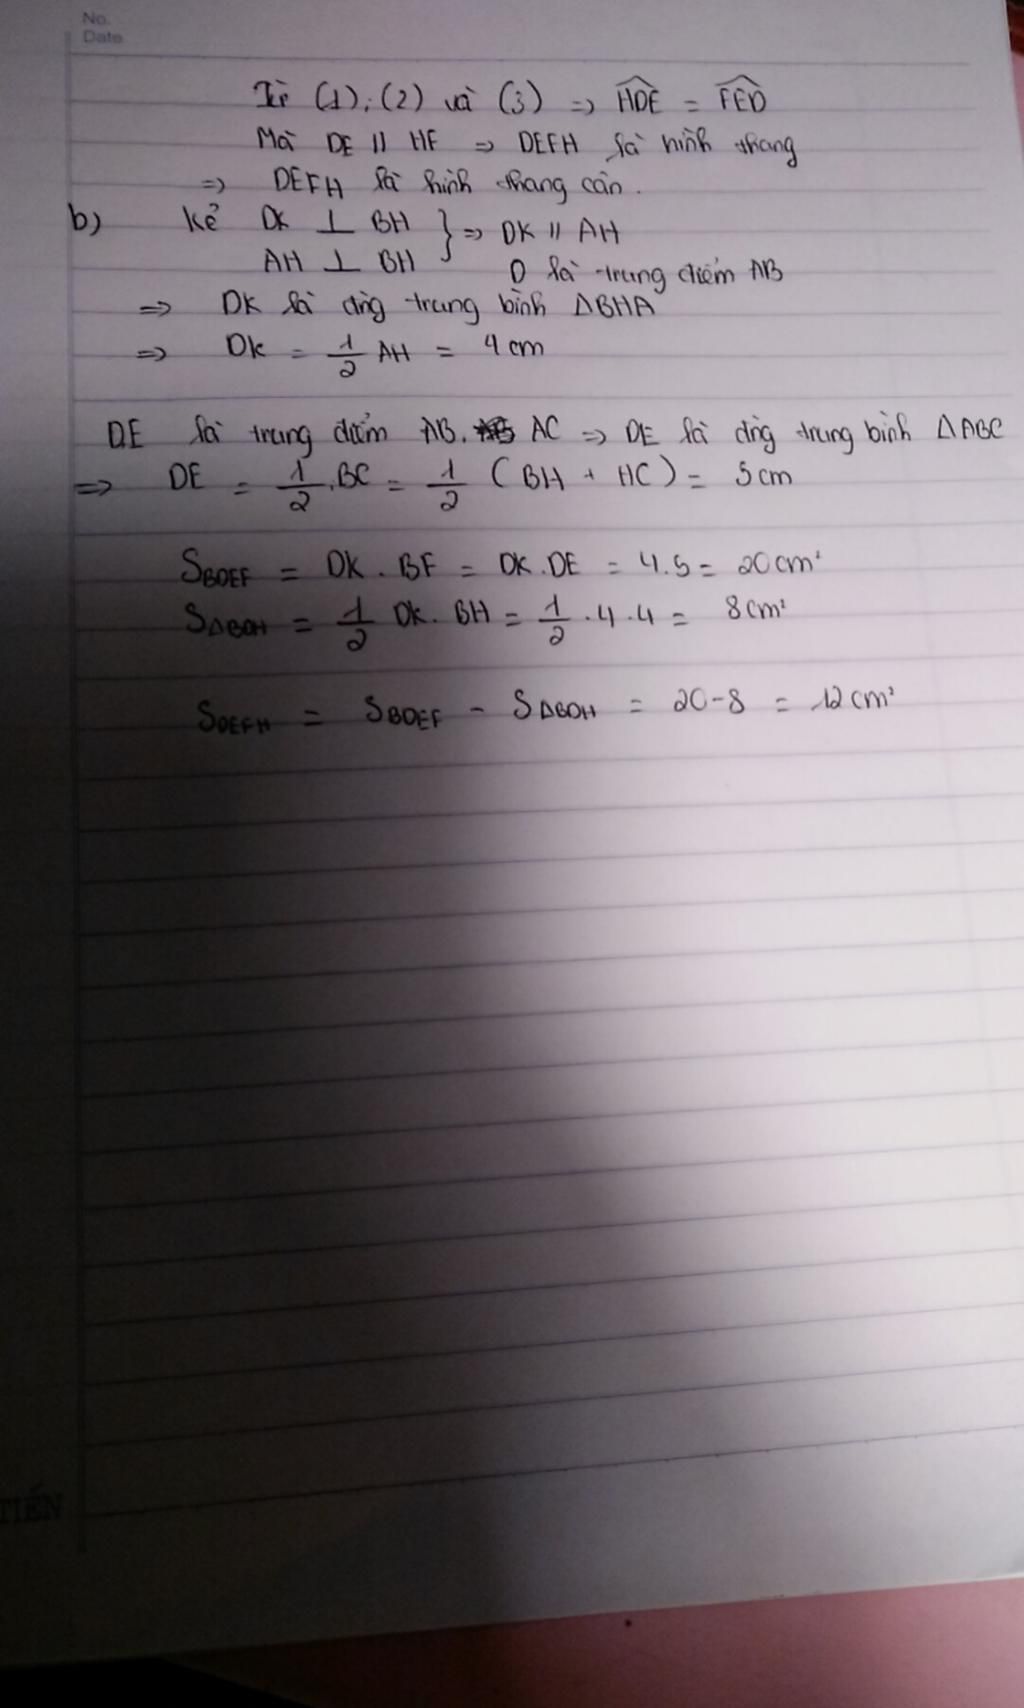 No.
Date
Từ (1), (2) và (3) => HDE = FED
Mà DE // HF => DEFH là hình thang
=> DEFH là hình thang cân.
b) Kẻ DK ⊥ BH } => DK // AH
AH ⊥ BH D là trung điểm AB
=> DK là đg trung bình ΔBHA
=> DK = 1/2 AH = 4 cm
DE là trung điểm AB, AC => DE là đg trung bình ΔABC
=> DE = 1/2 . BC = 1/2 (BH + HC) = 5 cm
SBDEF = DK . BF = DK . DE = 4.5 = 20 cm²
SΔBDH = 1/2 DK . BH = 1/2 . 4 . 4 = 8 cm²
SDEFH = SBDEF - SΔBDH = 20 - 8 = 12 cm²
TIẾN